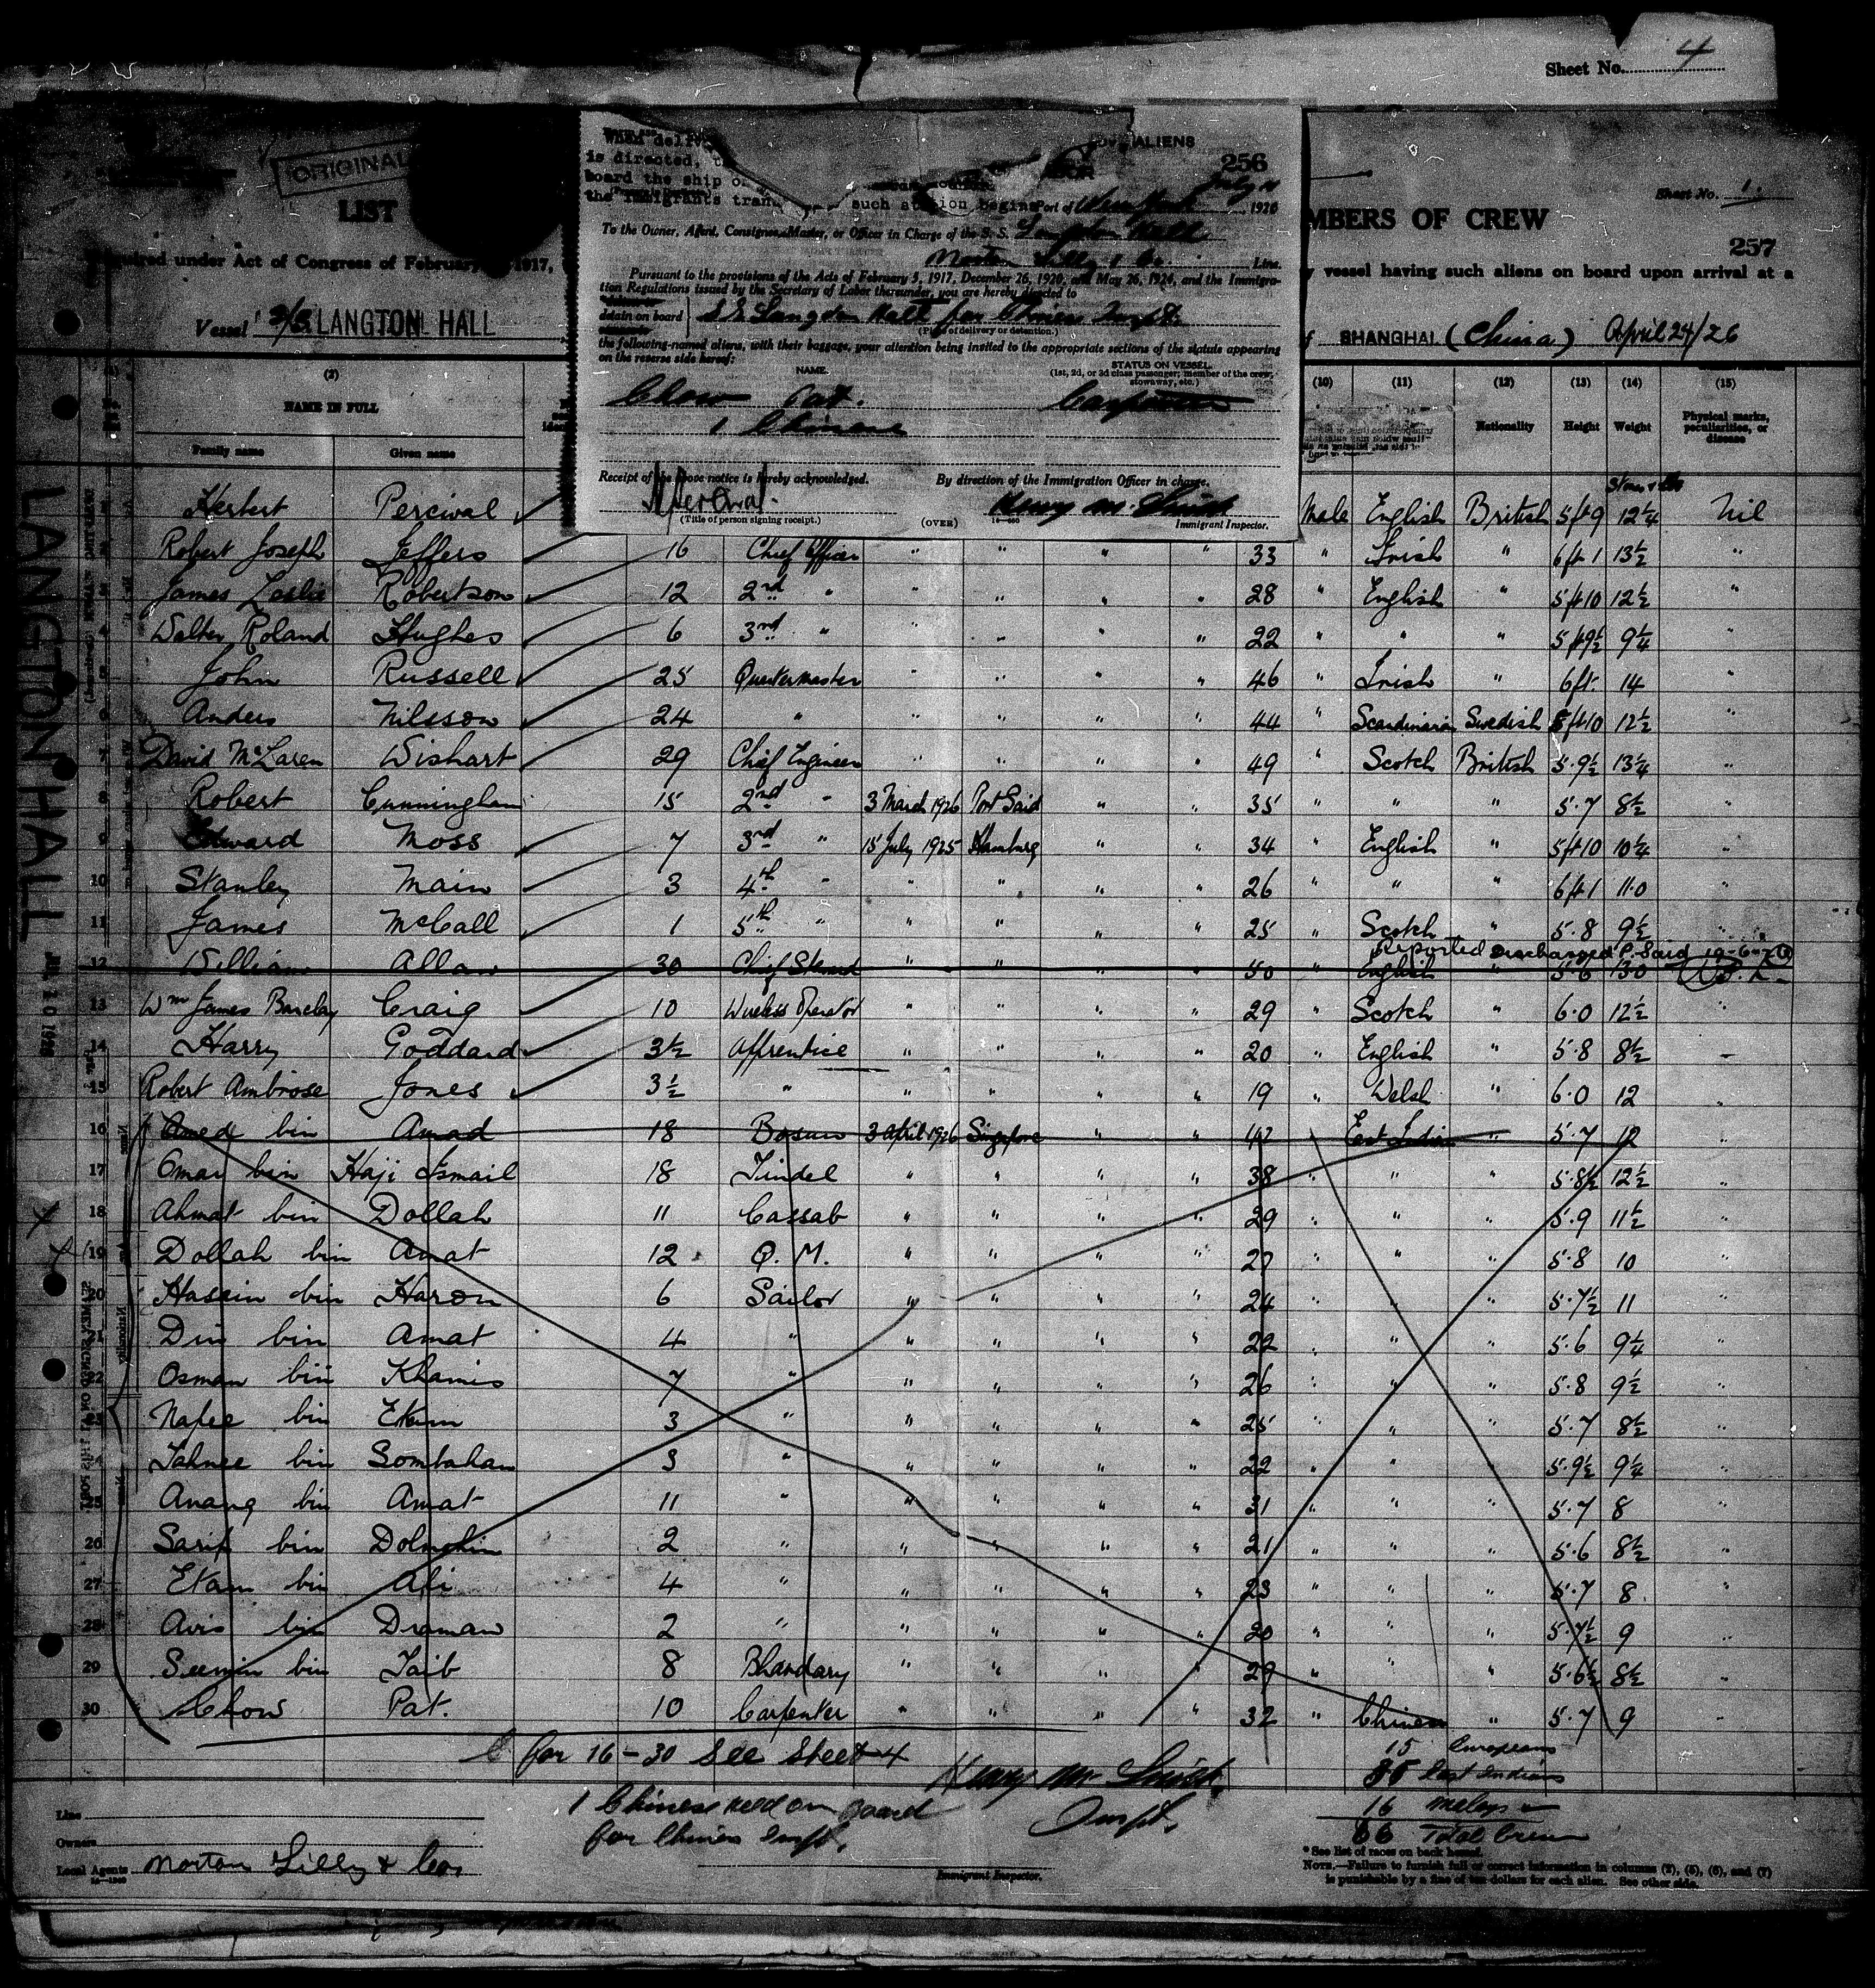 Sheet No. 4
ORIGINAL
LIST
MBERS OF CREW
Sheet No. 1
257
required under Act of Congress of February 1917,
y vessel having such aliens on board upon arrival at a
Vessel S/S LANGTON HALL
SHANGHAI (China) April 24/26
ALIENS
256
is directed,
board the ship
the immigrants
such station begins
Port of New York July 11 1926
To the Owner, Agent, Consignee, Master, or Officer in Charge of the S. S. Langton Hall
Norton Lilly & Co. Line.
Pursuant to the provisions of the Acts of February 5, 1917, December 26, 1920, and May 26, 1924, and the Immigra-
tion Regulations issued by the Secretary of Labor thereunder, you are hereby directed to
detain on board S.S. Langton Hall for Chinese Inspt.
(Place of delivery or detention.)
the following-named aliens, with their baggage, your attention being invited to the appropriate sections of the statute appearing
on the reverse side hereof:
NAME. STATUS ON VESSEL.
(1st, 2d, or 3d class passenger; member of the crew;
stowaway, etc.)
Chow Pat. Carpenter
1 Chinese
Receipt of the above notice is hereby acknowledged. By direction of the Immigration Officer in charge.
H Percival. Henry M. Smith
(Title of person signing receipt.) (OVER) Immigrant Inspector.
(2) (10) (11) (12) (13) (14) (15)
NAME IN FULL Nationality Height Weight Physical marks, peculiarities, or disease
Family name Given name
Herbert Percival Male English British 5ft9 12¼ Nil
Robert Joseph Jeffers 16 Chief Officer " " " " 33 " Irish " 6ft1 13½ "
James Leslie Robertson 12 2nd " " " " " 28 " English " 5ft10 12½ "
4 Walter Roland Hughes 6 3rd " " " " " 22 " " " 5ft9½ 9¼
5 John Russell 25 Quartermaster " " " " 46 " Irish " 6ft. 14 "
6 Anders Nilsson 24 " " " " " 44 " Scandinavian Swedish 5ft10 12½ "
7 David McLaren Wishart 29 Chief Engineer " " " " 49 " Scotch British 5.9½ 13¼ "
8 Robert Cunningham 15 2nd " 3 March 1926 Port Said " " 35 " " " 5.7 8½ "
9 Edward Moss 7 3rd " 15 July 1925 Hamburg " " 34 " English " 5ft10 10¼ "
10 Stanley Main 3 4th " " " " " 26 " " " 6ft1 11.0
11 James McCall 1 5th " " " " " 25 " Scotch " 5.8 9½ "
Reported Discharged P. Said 19-6-26
12 William Allan 30 Chief Steward " " " " 50 " English 5.6 130
13 Wm James Barclay Craig 10 Wireless Operator " " " " 29 " Scotch " 6.0 12½ "
14 Harry Goddard 3½ Apprentice " " " " 20 " English " 5.8 8½
15 Robert Ambrose Jones 3½ " " " " " 19 " Welsh " 6.0 12 "
16 Amed bin Amad 18 Bosun 3 April 1926 Singapore " " 42 East Indian " 5.7 12
17 Omar bin Haji Ismail 18 Tindel " " " " 38 " " " 5.8½ 12½ "
18 Ahmat bin Dollah 11 Cassab " " " " 29 " " " 5.9 11½ "
19 Dollah bin Amat 12 Q. M. " " " " 27 " " " 5.8 10 "
20 Hassin bin Haron 6 Sailor " " " " 24 " " " 5.7½ 11 "
21 Din bin Amat 4 " " " " " 22 " " " 5.6 9¼ "
22 Osman bin Khamis 7 " " " " " 26 " " " 5.8 9½ "
23 Nafee bin Ekum 3 " " " " " 25 " " " 5.7 8½ "
24 Tahnee bin Sombahan 3 " " " " " 22 " " " 5.9½ 9¼ "
25 Anang bin Amat 11 " " " " " 31 " " " 5.7 8 "
26 Sarip bin 2 " " " " " 21 " " " 5.6 8½ "
27 Ekam bin Ali 4 " " " " " 23 " " " 5.7 8 "
28 Avis bin Draman 2 " " " " " 20 " " " 5.7½ 9 "
29 Seemin bin Taib 8 Bhandary " " " " 29 " " " 5.6½ 8½ "
30 Chow Pat. 10 Carpenter " " " " 32 " Chinese " 5.7 9 "
for 16-30 See Sheet 4
15 Europeans
35 East Indians
16 Malays
66 Total Crew
Henry M. Smith
Inspt.
1 Chinese held on board
for Chinese Inspt.
Line
Owners
Local Agents Norton Lilly & Co.
Immigrant Inspector.
* See list of races on back hereof.
NOTE.—Failure to furnish full or correct information in columns (2), (5), (6), and (7)
is punishable by a fine of ten dollars for each alien. See other side.
LANGTON HALL
JUL 10 1926